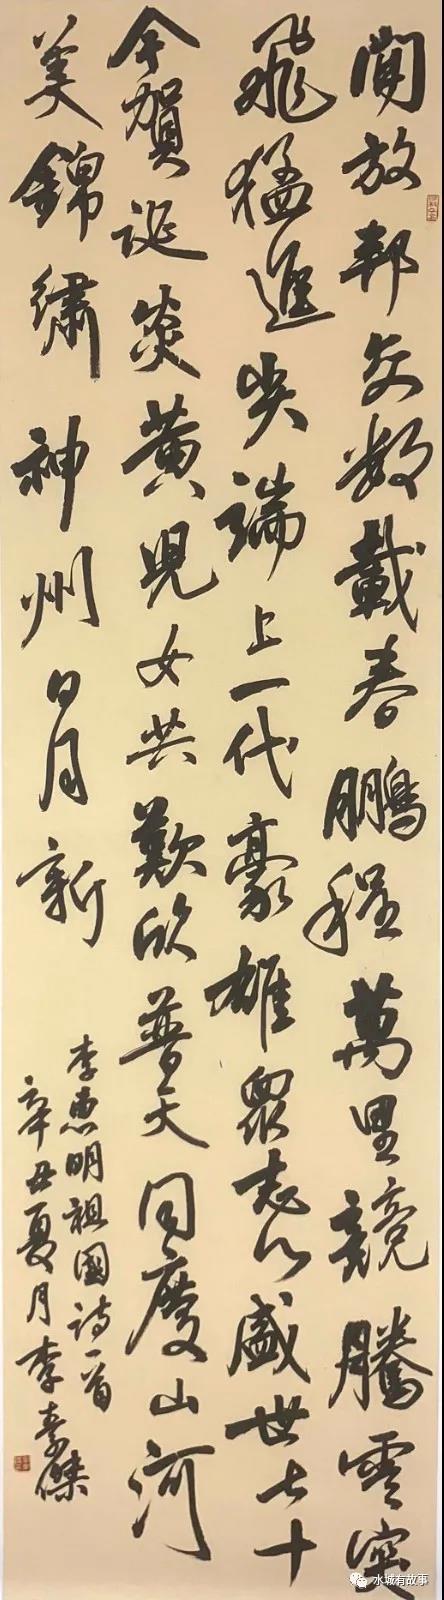 開放邦交數載春鵬程萬里競騰雲突
飛猛進尖端上一代豪雄眾志心盛世七十
今賀誕炎黃兒女共歡欣普天同慶山河
美錦繡神州日月新
李惠明祖國詩一首
辛丑夏月李傑
水城有故事